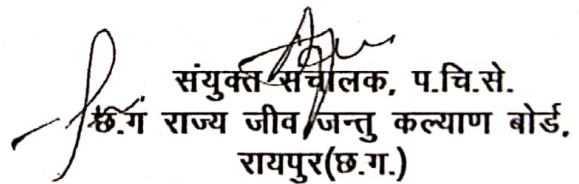 संयुक्त संचालक, प.चि.से.
छ.ग राज्य जीव जन्तु कल्याण बोर्ड,
रायपुर(छ.ग.)